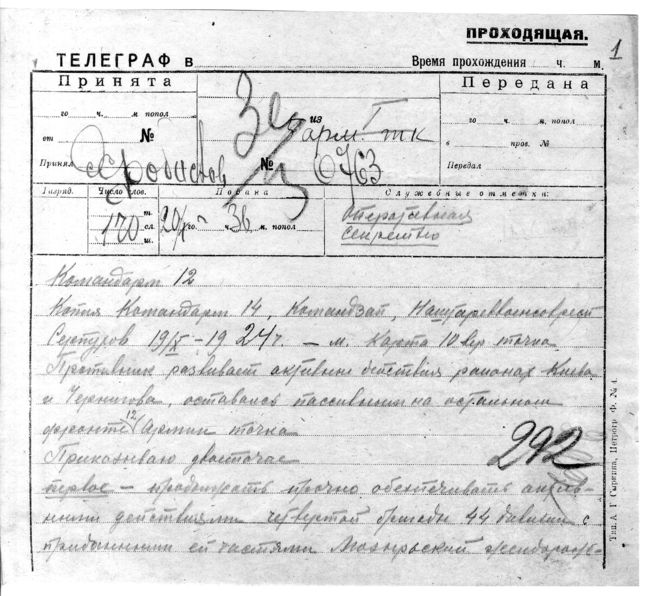 ПРОХОДЯЩАЯ.
1
ТЕЛЕГРАФ в
Время прохождения ч. м.
Принята
Передана
го ч. м. попол
го ч. м. попол.
из
от №
в пров. №
Принял
№ 0763
Передал
Разряд.
Число слов.
Подана
Служебные отметки:
170
сл.
го ч 36 м. попол
Оперативная
секретно
Командарм 12
Копия Командарм 14, Командзап, Наштареввоенсовресп
Серпухов 19/X – 19 24 ч. – м. Карта 10 вер точка
Противник развивает активные действия районах Киева
и Чернигова, оставаясь пассивным на остальном
фронте 12 Армии точка
292
Приказываю двоеточие
первое – продолжать прочно обеспечивать актив-
ными действиями четвертой бригады 44 дивизии с
приданными ей частями Мозырьский
Тип. А. Г. Сыркина, Петрогр. Ф. № 4.